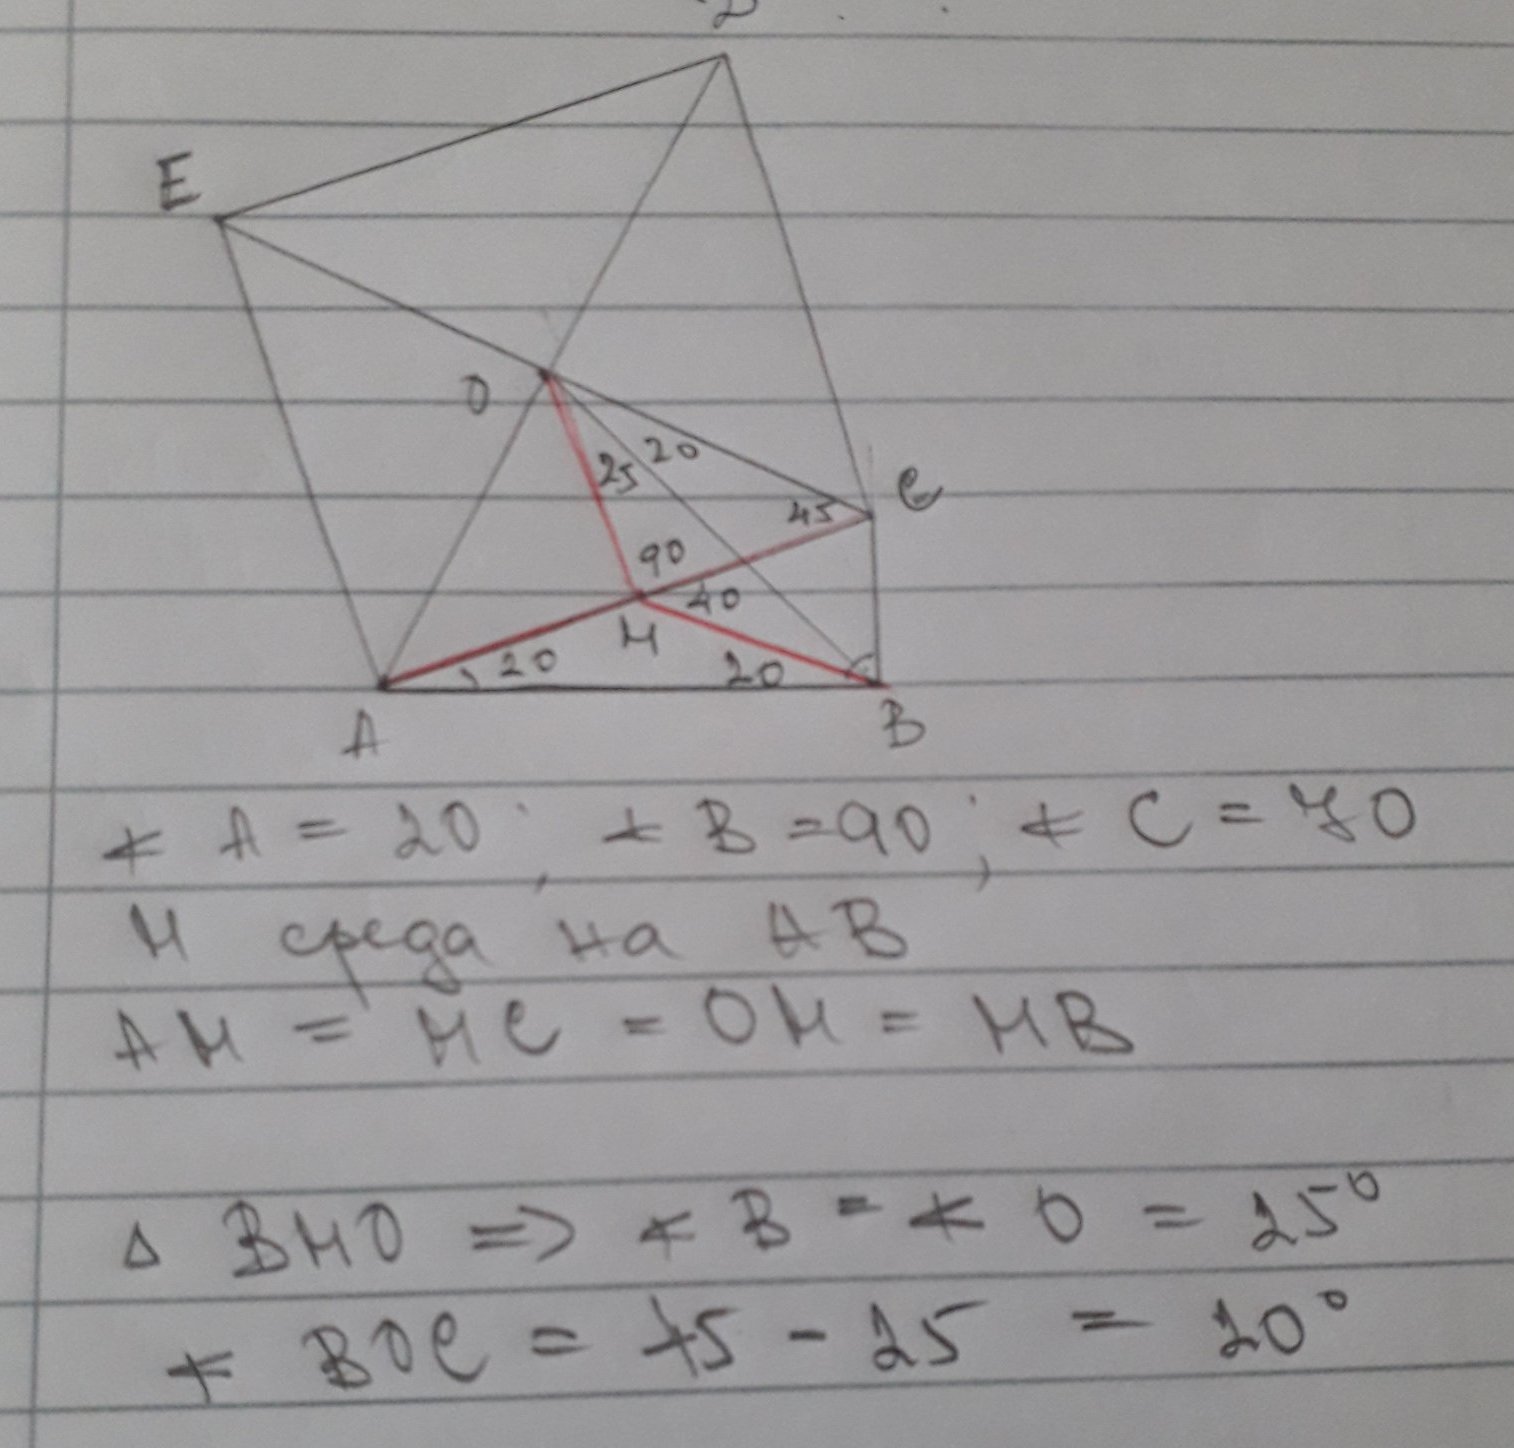 D
E
O
20
25
C
45
90
40
M
20
20
A
B
∢ A = 20°, ∢ B = 90°, ∢ C = 70
M среда на AB
AM = MC = OM = MB
Δ BMO => ∢ B = ∢ O = 25°
∢ BOC = 45 - 25 = 20°